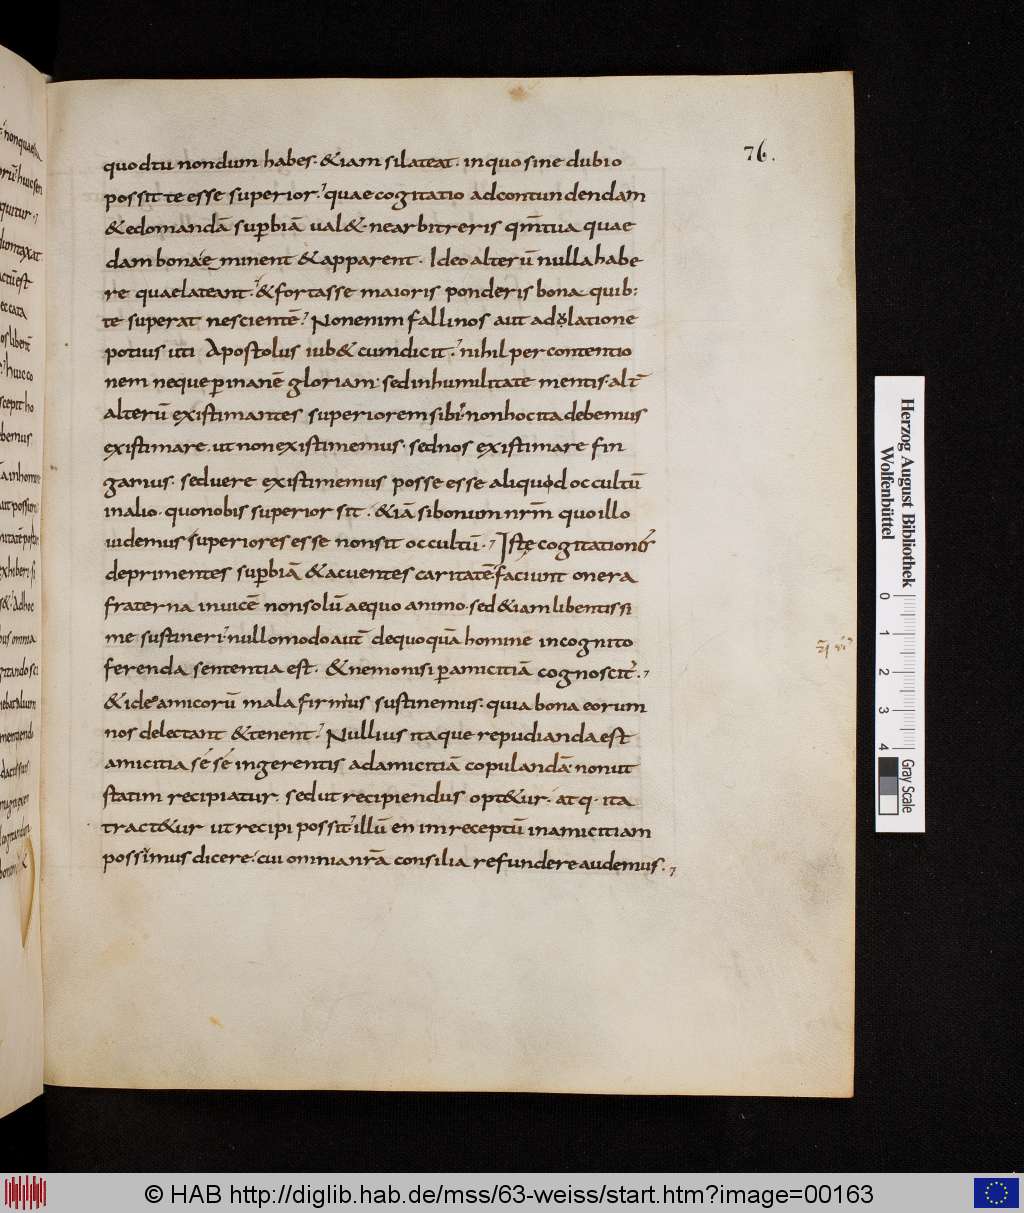 76.
quod tu nondum habes. & iam si lateat. in quo sine dubio
possit te esse superior. quae cogitatio ad contundendam
& edomandā suꝑbiā ual&. ne arbitreris qm̄ tua quae
dam bona eminent & apparent. Ideo alterū nulla habe
re quae lateant. & fortasse maioris ponderis bona quib;
te superat nescientē. Non enim falli nos aut adolatione
potius uti Apostolus iub& cum dicit. nihil per contentio
nem neque ꝑ inanē gloriam. sed in humilitate mentis. alt̄
alterū existimantes superiorem sibi. non hoc ita debemus
existimare. ut non existimemus. sed nos existimare fin
gamus. sed uere existimemus posse esse aliquod occultū
in alio. quo nobis superior sit. & iā si bonum nr̄m quo illo
uidemus superiores esse non sit occultū. Iste cogitationes
deprimentes suꝑbiā & acuentes caritatē. faciunt onera
fraterna inuicē non solū aequo animo. sed & iam libentissi
me sustineri. nullo modo aut̄ de quoquā homine incognito
ferenda sententia est. & nemo nisi ꝑ amicitiā cognoscit̄.
& ideo amicorū mala firmius sustinemus. quia bona eorum
nos delectant & tenent. Nullius itaque repudianda est
amicitia sé sé ingerentis ad amicitiā copulandā. non ut
statim recipiatur. sed ut recipiendus opt&ur. atq. ita
tract&ur ut recipi possit. illū enim receptū in amicitiam
possimus dicere. cui omnia nr̄a consilia refundere audemus.
Herzog August Bibliothek
Wolfenbüttel
0 1 2 3 4
Gray Scale
© HAB http://diglib.hab.de/mss/63-weiss/start.htm?image=00163